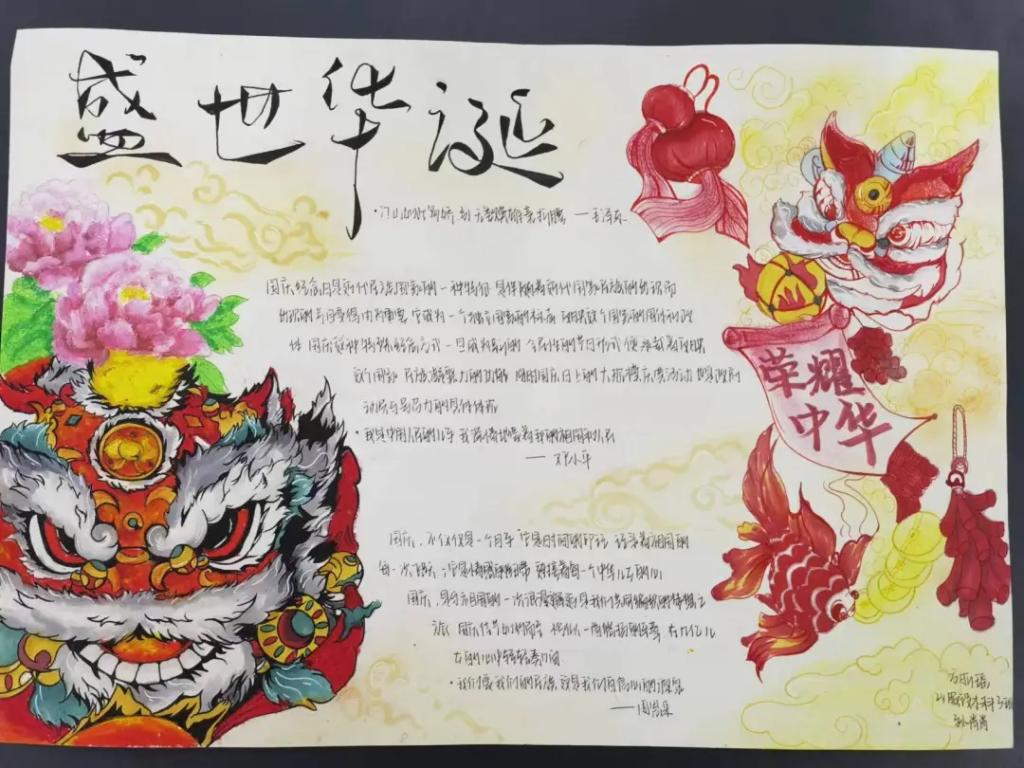 盛世华诞
·江山如此多娇 引无数英雄竞折腰 ——毛泽东
国庆纪念日是近代民族国家的一种特征 是伴随着近代国家民族的出现而
出现的 并且变得尤为重要 它成为一个独立国家的标志 反映这个国家的国体和政
体 国庆这种特殊纪念方式一旦成为新的 全民性的节日形式 便承载着反映
这个国家 民族凝聚力的功能 同时国庆日上的大规模庆典活动 也是政府
动员与号召力的具体体现
·我是中国人民的儿子 我深情地爱着我的祖国和人民
——邓小平
荣耀
中华
国庆，不仅仅是一个日子 它是时间的印记 记录着祖国的
每一次飞跃；它是情感的纽带 连接着每一个中华儿女的心
国庆，是 一次深情 是我们共同编织的梦想之
旅 国庆 一面飘扬的 在亿万儿
女的心中轻轻
·我们爱我们的民族 这是我们自信心的源泉
——周恩来
本科3班